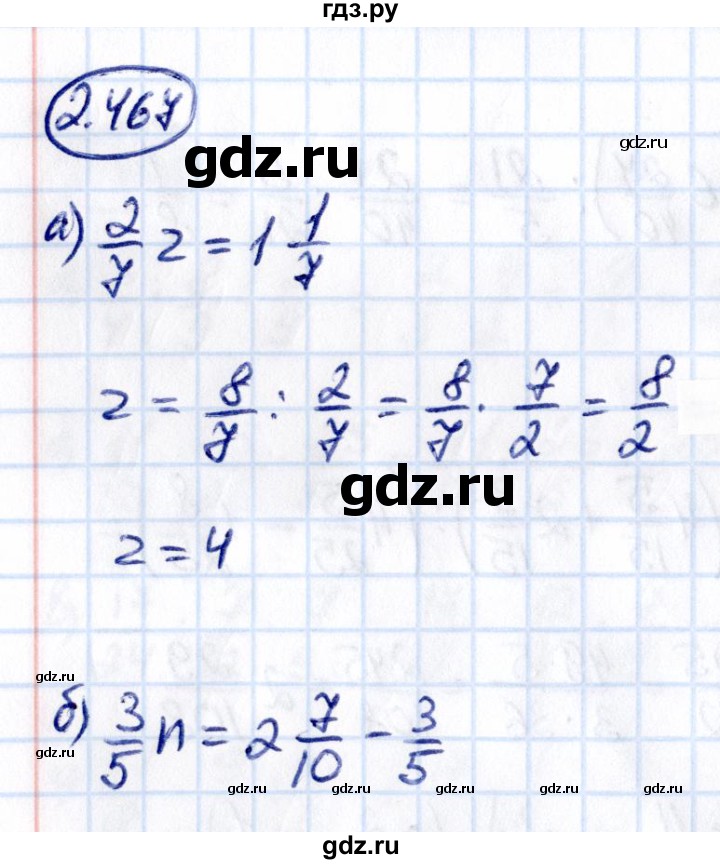 гдз.ру
2.467
gdz.ru
gdz.ru
а) 2/7 z = 1 1/7
z = 8/7 : 2/7 = 8/7 · 7/2 = 8/2
gdz.ru
z = 4
gdz.ru
б) 3/5 n = 2 7/10 - 3/5
gdz.ru
gdz.ru gdz.ru gdz.ru gdz.ru
gdz.ru